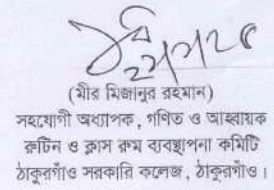 (মীর মিজানুর রহমান)
সহযোগী অধ্যাপক, গণিত ও আহ্বায়ক
রুটিন ও ক্লাস রুম ব্যবস্থাপনা কমিটি
ঠাকুরগাঁও সরকারি কলেজ, ঠাকুরগাঁও।